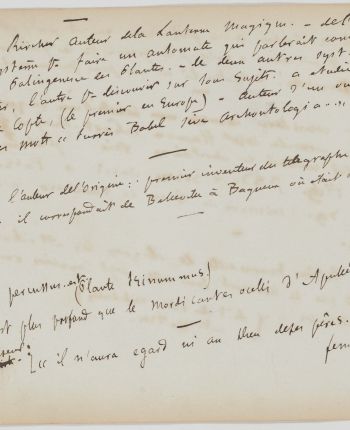 Kircher auteur de la Lanterne Magique. - de l
système pr faire un automate qui parlerait com
Palingenese des Plantes. - de deux autres syst
l'autre pr discourir sur tous sujets. a étudié
Copte, (le premier en Europe) - auteur d'un ou
mots « turris Babel sive archontologia
l'auteur de l'Origine: premier inventeur du telegraphe
il correspondait de à où était
percussus. est (Plaute Trinummus)
plus profond que le Mordicantes ocelli d'Apulée
[« il n'aura egard ni au Dieu de ses pères.
fem